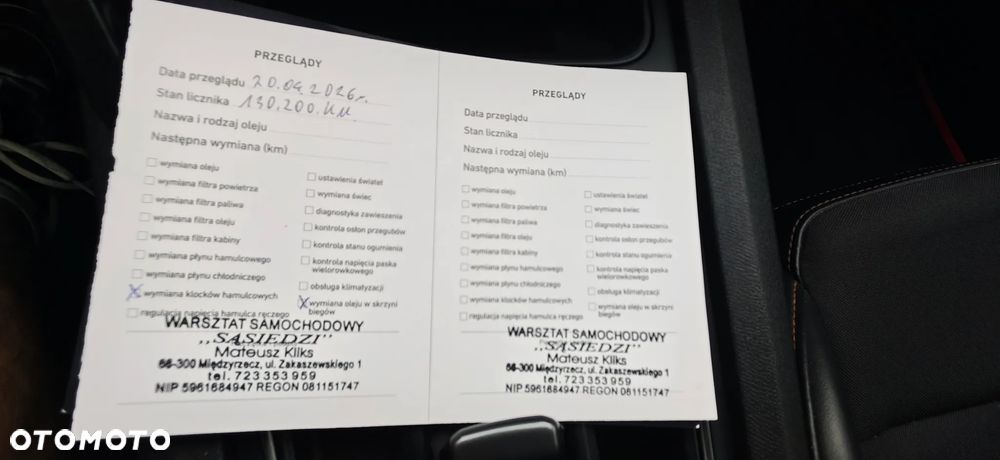 PRZEGLĄDY
Data przeglądu 20.04.2026r.
Stan licznika 130.200.KM.
Nazwa i rodzaj oleju
Następna wymiana (km)
wymiana oleju
wymiana filtra powietrza
wymiana filtra paliwa
wymiana filtra oleju
wymiana filtra kabiny
wymiana płynu hamulcowego
wymiana płynu chłodniczego
X wymiana klocków hamulcowych
regulacja napięcia hamulca ręcznego
ustawienia świateł
wymiana świec
diagnostyka zawieszenia
kontrola osłon przegubów
kontrola stanu ogumienia
kontrola napięcia paska
wielorowkowego
obsługa klimatyzacji
X wymiana oleju w skrzyni
biegów
WARSZTAT SAMOCHODOWY
„SĄSIEDZI”
Mateusz Kliks
66-300 Międzyrzecz, ul. Zakaszewskiego 1
tel. 723 353 959
NIP 5961684947 REGON 081151747
PRZEGLĄDY
Data przeglądu
Stan licznika
Nazwa i rodzaj oleju
Następna wymiana (km)
wymiana oleju
wymiana filtra powietrza
wymiana filtra paliwa
wymiana filtra oleju
wymiana filtra kabiny
wymiana płynu hamulcowego
wymiana płynu chłodniczego
wymiana klocków hamulcowych
regulacja napięcia hamulca ręcznego
ustawienia świateł
wymiana świec
diagnostyka zawieszenia
kontrola osłon przegubów
kontrola stanu ogumienia
kontrola napięcia paska
wielorowkowego
obsługa klimatyzacji
wymiana oleju w skrzyni
biegów
WARSZTAT SAMOCHODOWY
„SĄSIEDZI”
Mateusz Kliks
66-300 Międzyrzecz, ul. Zakaszewskiego 1
tel. 723 353 959
NIP 5961684947 REGON 081151747
OTOMOTO